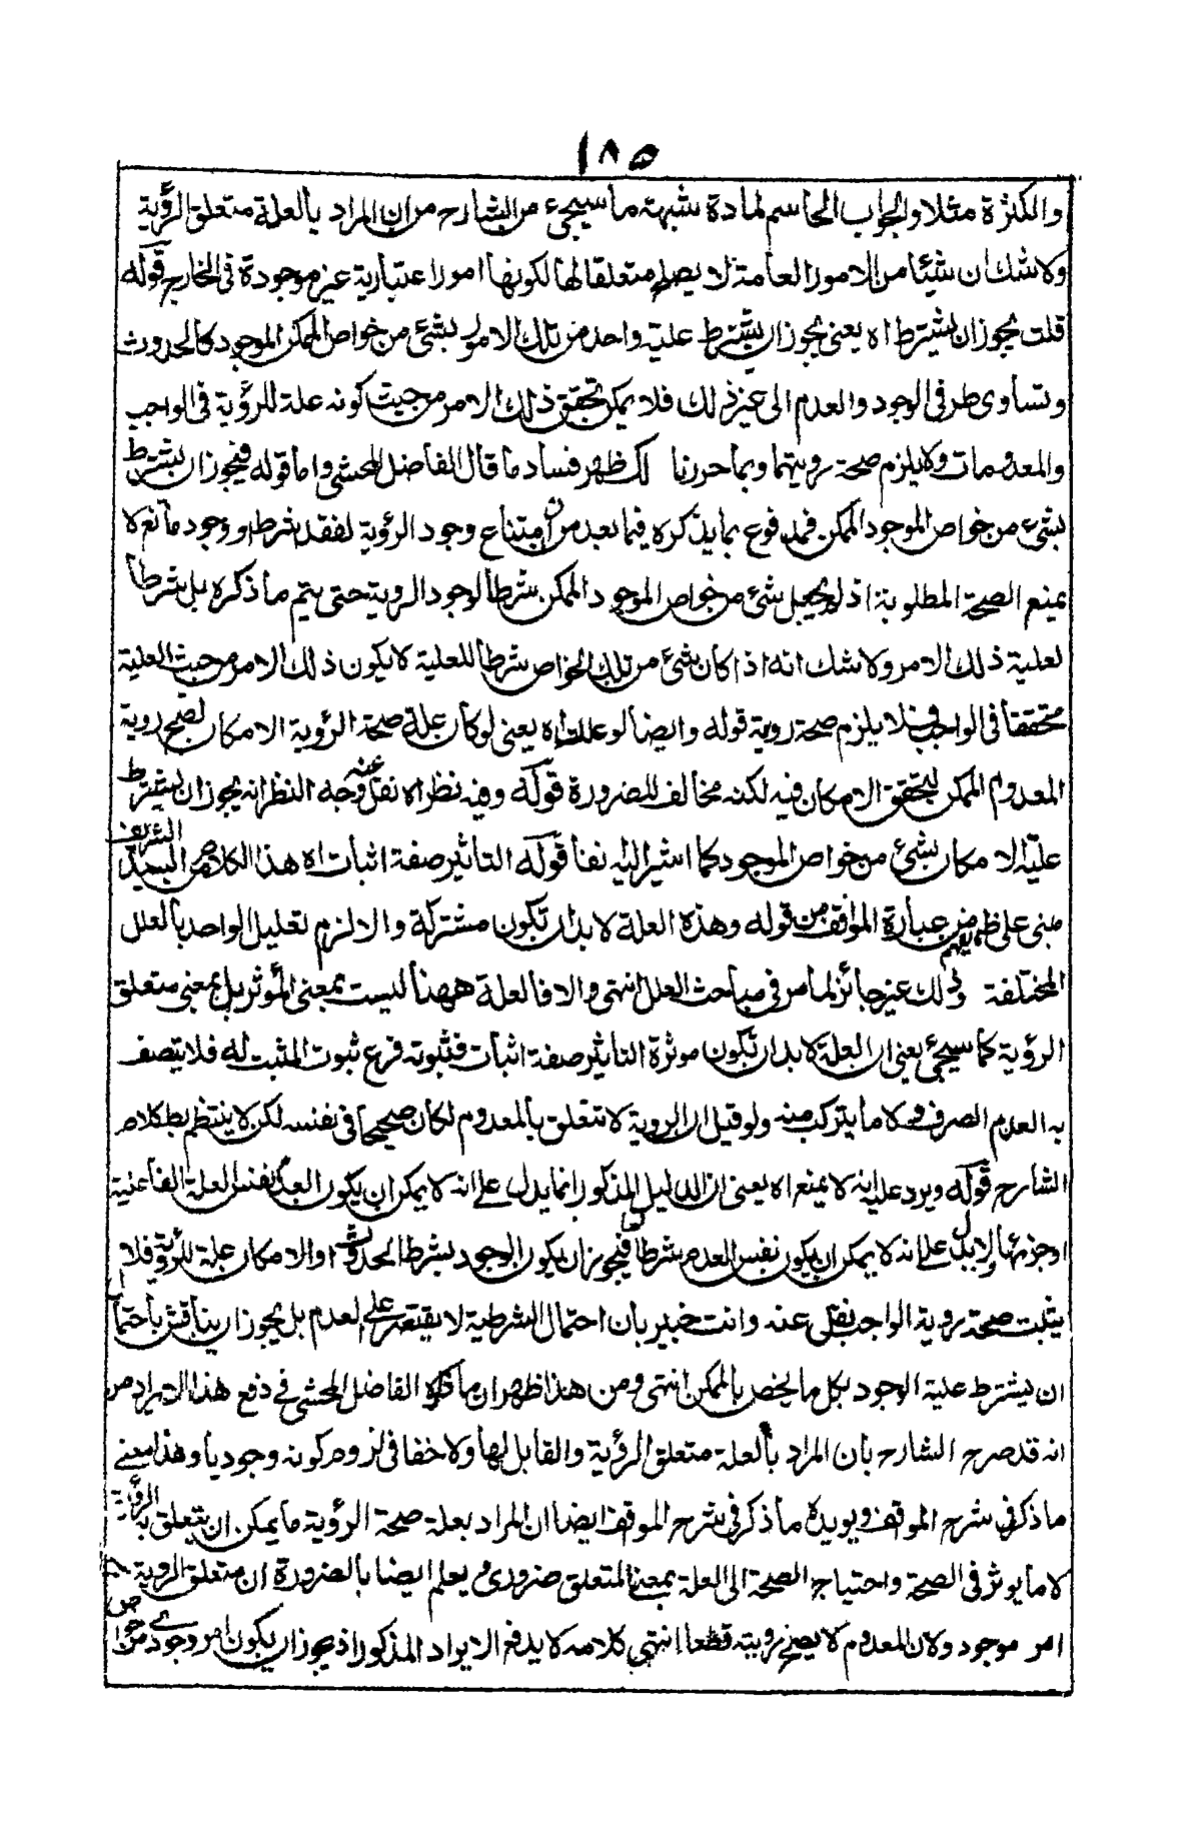 ١٨٥
والكثرة مثلا والجواب الحاسم لمادة شبهته ما سيجئ من الشارح من ان المراد بالعلة متعلق الرؤية
ولا شك ان شيئا من الامور العامة لا يصلح متعلقا لها لكونها امورا عتبارية غير موجودة في الخارج قوله
قلت يجوز ان يشترط اه يعني يجوز ان يشترط علية واحد من تلك الامور بشئ من خواص الممكن الموجود كالحدوث
وتساوي طرفي الوجود والعدم الى غير ذلك فلا يمكن تحقق ذلك الامر من حيث كونه علة للرؤية في الواجب
والمعدومات ولا يلزم صحة رويتهما وبما حررنا لك ظهر فساد ما قال الفاضل المحشي واما قوله فيجوز ان يشترط
بشئ من خواص الموجود الممكن فمدفوع بما يذكره فيما بعد من ان امتناع وجود الروية لفقد شرط او وجود مانع لا
يمنع الصحة المطلوبة اذ لم يجعل شئ من خواص الموجود الممكن شرطا لوجود الروية حتى يتم ما ذكره بل شرطا
لعلية ذلك الامر ولا شك انه اذا كان شئ من تلك الخواص شرطا للعلية لا يكون ذلك الامر من حيث العلية
متحققا في الواجب فلا يلزم صحة روية قوله وايضا لو عللت اه يعني لو كان علة صحة الرؤية الامكان لصح روية
المعدوم الممكن لتحقق الامكان فيه لكنه مخالف للضرورة قوله وفيه نظر اه نقل عنه وجه النظر انه يجوز ان يشترط
علية الامكان بشئ من خواص الموجود كما اشير اليه نفا قوله التاثير صفة اثبات اه هذا الكلام من السيد الشريف
مبنى على ما يفهم من عبارة المواقف من قوله وهذه العلة لا بد ان تكون مشتركة والا لزم تعليل الواحد بالعلل
المختلفة وذلك غير جائز لما مر في مباحث العلل انتهى والا فالعلة ههنا ليست بمعنى المؤثر بل بمعنى متعلق
الرؤية كما سيجئ يعني ان العلة لا بد ان تكون موثرة التاثير صفة اثبات فثبوته فرع ثبوت المثبت له فلا يتصف
به العدم الصرف ولا ما يتركب منه ولو قيل ان الروية لا تتعلق بالمعدوم لكان صحيحا في نفسه لكن لا ينتظم بطكلام
الشارح قوله ويرد عليه انه لا يمنع اه يعني ان الدليل المذكور انما يدل على انه لا يمكن ان يكون العدم نفس العلة الفاعلية
او جزئها ولا يدل على انه لا يمكن ان يكون نفس العدم شرطا لها فيجوز ان يكون الوجود بشرط الحدوث او الامكان علة للرؤية فلا
يثبت صحة روية الواجب نقل عنه وانت خبير بان احتمال الشرطية لا يقتصر على العدم بل يجوز ان يناقش باحتمال
ان يشترط علية الوجود بكل ما يخص بالممكن انتهى ومن هذا ظهر ان ما ذكره الفاضل المحشي في دفع هذا الايراد من
انه قد صرح الشارح بان المراد بالعلة متعلق الرؤية والقابل لها ولا خفا في لزوم كونه وجوديا وهذا معنى
ما ذكر في شرح المواقف ويويده ما ذكر في شرح المواقف ايضا ان المراد بعلة صحة الرؤية ما يمكن ان يتعلق به الرؤية
لا ما يوثر في الصحة واحتياج الصحة الى العلة بمعنى المتعلق ضروري ويعلم ايضا بالضرورة ان متعلق الروية
امر موجود ولان المعدوم لا يصح رويته قطعا انتهى كلامه لا يدفع الايراد المذكور اذ يجوز ان يكون امر وجودي من خواص